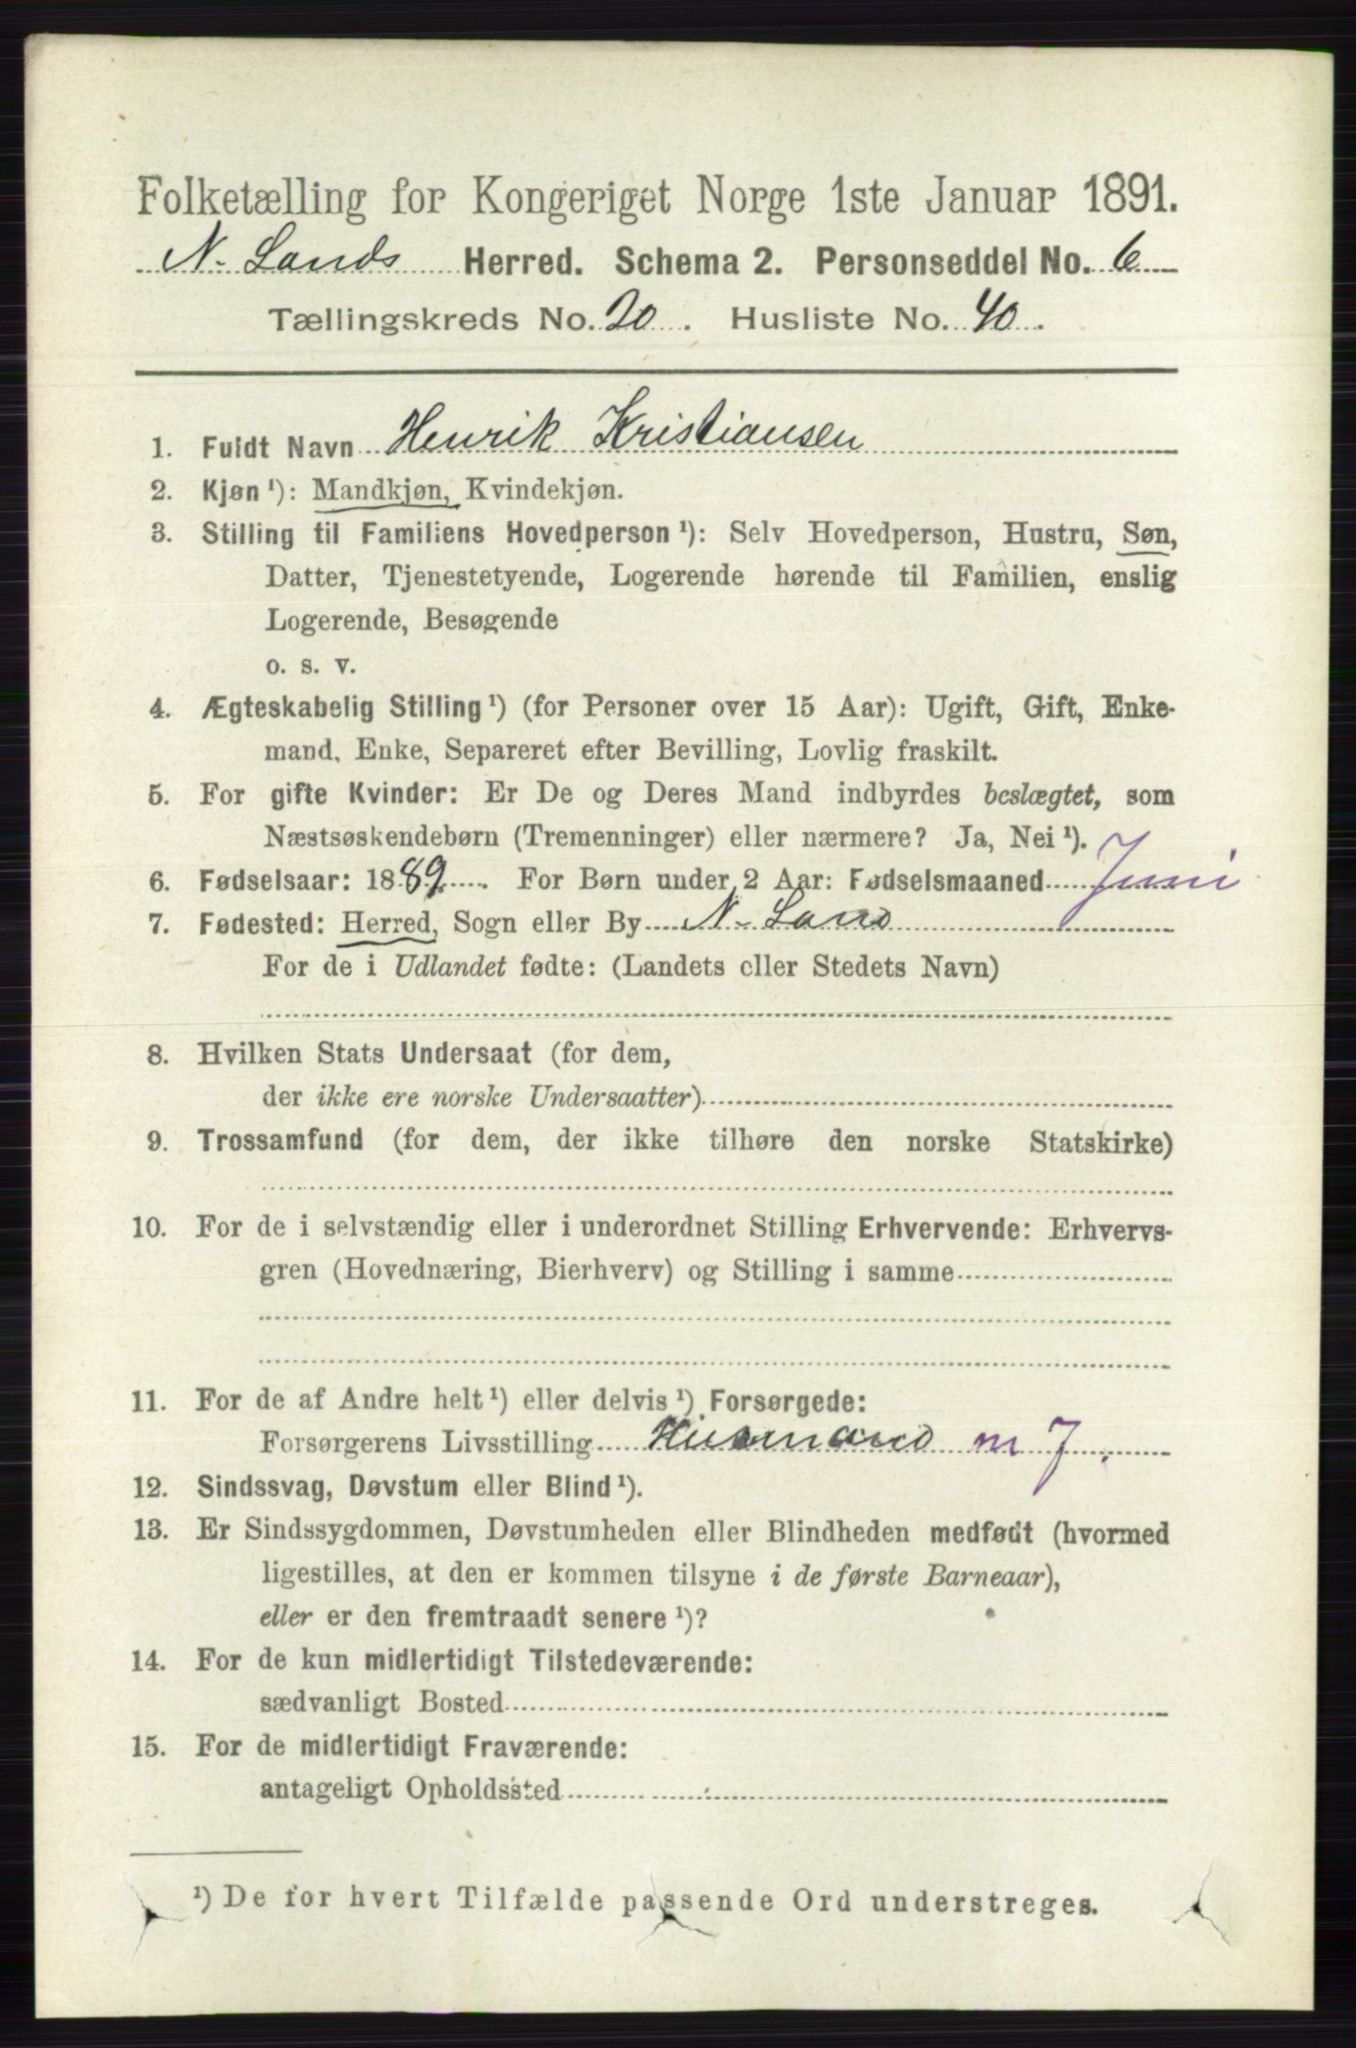 Folketælling for Kongeriget Norge 1ste Januar 1891.
N. Lands Herred. Schema 2. Personseddel No. 6
Tællingskreds No. 20. Husliste No. 40.
1. Fuldt Navn Henrik Kristiansen
2. Kjøn ¹): Mandkjøn, Kvindekjøn.
3. Stilling til Familiens Hovedperson ¹): Selv Hovedperson, Hustru, Søn,
Datter, Tjenestetyende, Logerende hørende til Familien, enslig
Logerende, Besøgende
o. s. v.
4. Ægteskabelig Stilling ¹) (for Personer over 15 Aar): Ugift, Gift, Enke-
mand, Enke, Separeret efter Bevilling, Lovlig fraskilt.
5. For gifte Kvinder: Er De og Deres Mand indbyrdes beslægtet, som
Næstsøskendebørn (Tremenninger) eller nærmere? Ja, Nei ¹).
6. Fødselsaar: 1889. For Børn under 2 Aar: Fødselsmaaned Juni
7. Fødested: Herred, Sogn eller By N. Land
For de i Udlandet fødte: (Landets eller Stedets Navn)
8. Hvilken Stats Undersaat (for dem,
der ikke ere norske Undersaatter)
9. Trossamfund (for dem, der ikke tilhøre den norske Statskirke)
10. For de i selvstændig eller i underordnet Stilling Erhvervende: Erhvervs-
gren (Hovednæring, Bierhverv) og Stilling i samme
11. For de af Andre helt ¹) eller delvis ¹) Forsørgede:
Forsørgerens Livsstilling Husmand m J.
12. Sindssvag, Døvstum eller Blind ¹).
13. Er Sindssygdommen, Døvstumheden eller Blindheden medfødt (hvormed
ligestilles, at den er kommen tilsyne i de første Barneaar),
eller er den fremtraadt senere ¹)?
14. For de kun midlertidigt Tilstedeværende:
sædvanligt Bosted
15. For de midlertidigt Fraværende:
antageligt Opholdssted
¹) De for hvert Tilfælde passende Ord understreges.